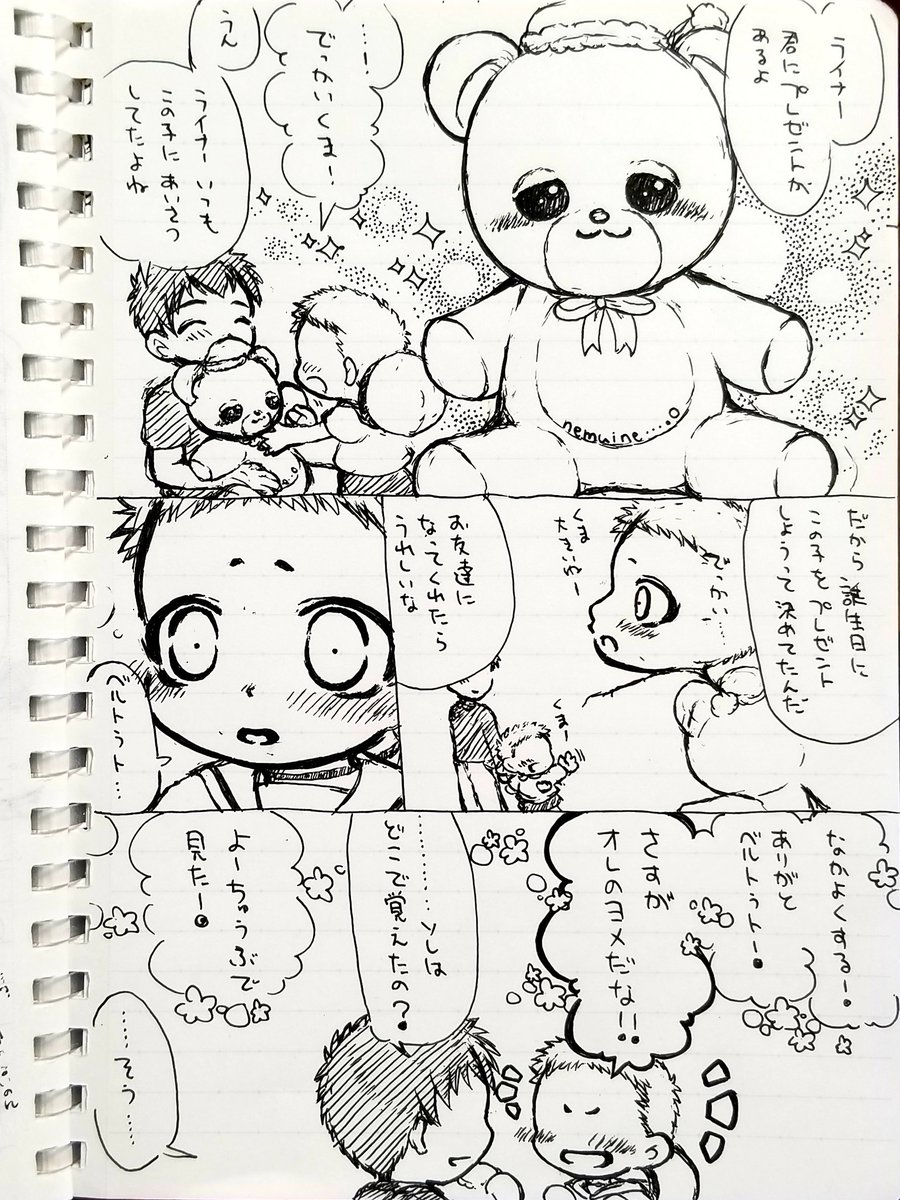 ライナー
君にプレゼントが
あるよ
…！
でっかいくま！
うん
ライナーいつも
この子にあいさつ
してたよね
nemuine....o
だから 誕生日に
この子をプレゼント
しようって決めてたんだ
でっかい…
くま
大きいねー
くまー
お友達に
なってくれたら
うれしいな
ベルトゥト…
なかよくするー！
ありがと
ベルトゥトー！
さすが
オレのヨメだな!!
………ソレは
どこで覚えたの？
よーちゅうぶで
見たー！
……そう……